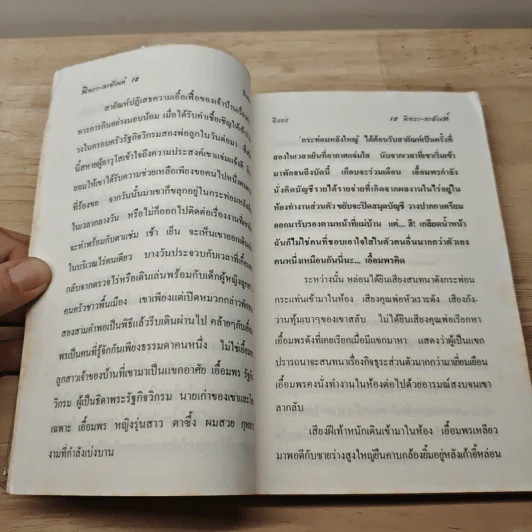 พิทยา-สะอัณห์ 12
สายัณห์ปฏิเสธความเอื้อเฟื้อของเจ้าบ้านเรื่อง
หารการกินอย่างนอบน้อม เมื่อได้รับคำเชื้อเชิญให้เข้า
วงในครอบครัวรัฐกิจวิกรมสองพ่อลูกในวันต่อมา
นี้สหายผู้อาวุโสเข้าใจถึงความประสงค์เขาแจ่มแจ้งดี
ยอมให้เขาได้รับความช่วยเหลือเพียงขอคนไปหนึ่งคน
ที่ร้องขอ จากวันนั้นมาเขาก็ขลุกอยู่ในกระท่อมหลัง
ในเวลากลางวัน หรือไม่ก็ออกไปติดต่อเรื่องงานที่
จะทำพร้อมกับตาแช่ม เช้า เย็น จะเห็นเขาออกเดิน
ในบริเวณไร่คนเดียว บางวันประจวบกับเวลาที่เอื้อม
กลับจากตรวจไร่หรือเดินเล่นพร้อมกับเด็กผู้หญิงลูก
คนครัวชาวพื้นเมือง เขาเพียงแต่เปิดหมวกกล่าวทัก
สองสามคำพอเป็นพิธีแล้วรีบเดินผ่านไป คล้ายๆกับเอื้อม
พรเป็นคนที่รู้จักกันเพียงธรรมดาคนหนึ่ง ไม่ใช่เอื้อมพร
ลูกสาวเจ้าของบ้านที่เขามาเป็นแขกอาศัย เอื้อมพร รัฐกิจ
วิกรม ผู้เป็นธิดาพระรัฐกิจวิกรม นายเก่าของเขาและ
เฉพาะ เอื้อมพร หญิงรุ่นสาว ตาซึ้ง ผมสวย
งามที่กำลังเบ่งบาน
12 พิทยา-สะอัณห์
'กระท่อมหลังใหญ่' ได้ต้อนรับสายัณห์เป็นครั้งที่
สองในเวลาเย็นที่อากาศแจ่มใส นับจากเวลาที่เขาเริ่มเข้า
มาพักจนถึงบัดนี้ เกือบจะร่วมเดือน เอื้อมพรกำลัง
นั่งคิดบัญชีรายได้รายจ่ายที่เกิดจากผลงานในไร่อยู่ใน
ห้องทำงานส่วนตัว ขยับจะปิดสมุดบัญชี วางปากกาเตรียม
ออกมารับรองตามหน้าที่แม่บ้าน แต่... สี! เกลียดน้ำหน้า
ฉันก็ไม่ใช่คนที่ชอบเอาใจใส่ในตัวคนอื่นมากกว่าตัวเอง
คนหนึ่งเหมือนกันนี่นะ... เอื้อมพรคิด
ระหว่างนั้น หล่อนได้ยินเสียงสนทนาดังกระท่อน
กระแท่นเข้ามาในห้อง เสียงคุณพ่อหัวเราะดัง เสียงกัง-
วานทุ้มเบาๆของเขาสลับ ไม่ได้ยินเสียงคุณพ่อเรียกหา
เอื้อมพรดังที่เคยเรียกเมื่อมีแขกมาหา แสดงว่าผู้เป็นแขก
ปรารถนาจะสนทนาเรื่องกิจธุระส่วนตัวมากกว่ามาเยี่ยมเยือน
เอื้อมพรคงนั่งทำงานในห้องต่อไปด้วยอารมณ์สงบจนเขา
ลากลับ
เสียงฝีเท้าหนักเดินเข้ามาในห้อง เอื้อมพรเหลียว
มาพอดีกับชายร่างสูงใหญ่ยืนคาบกล้องยิ้มอยู่หลังเก้าอี้หล่อน